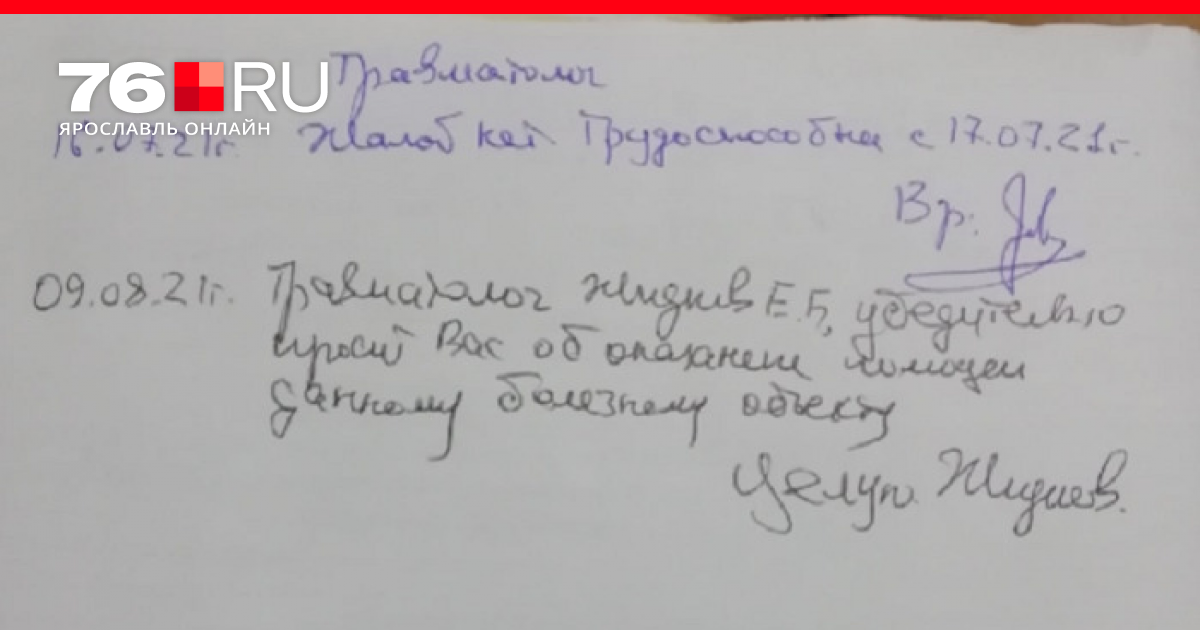 76.RU
ЯРОСЛАВЛЬ ОНЛАЙН
Травматолог
16.07.21г. Жалоб нет. Трудоспособна с 17.07.21г.
Вр.
09.08.21г. Травматолог Жиднев Е.Б, убедительно
просит Вас об оказании помощи
данному болезному объекту
Целую. Жиднев.